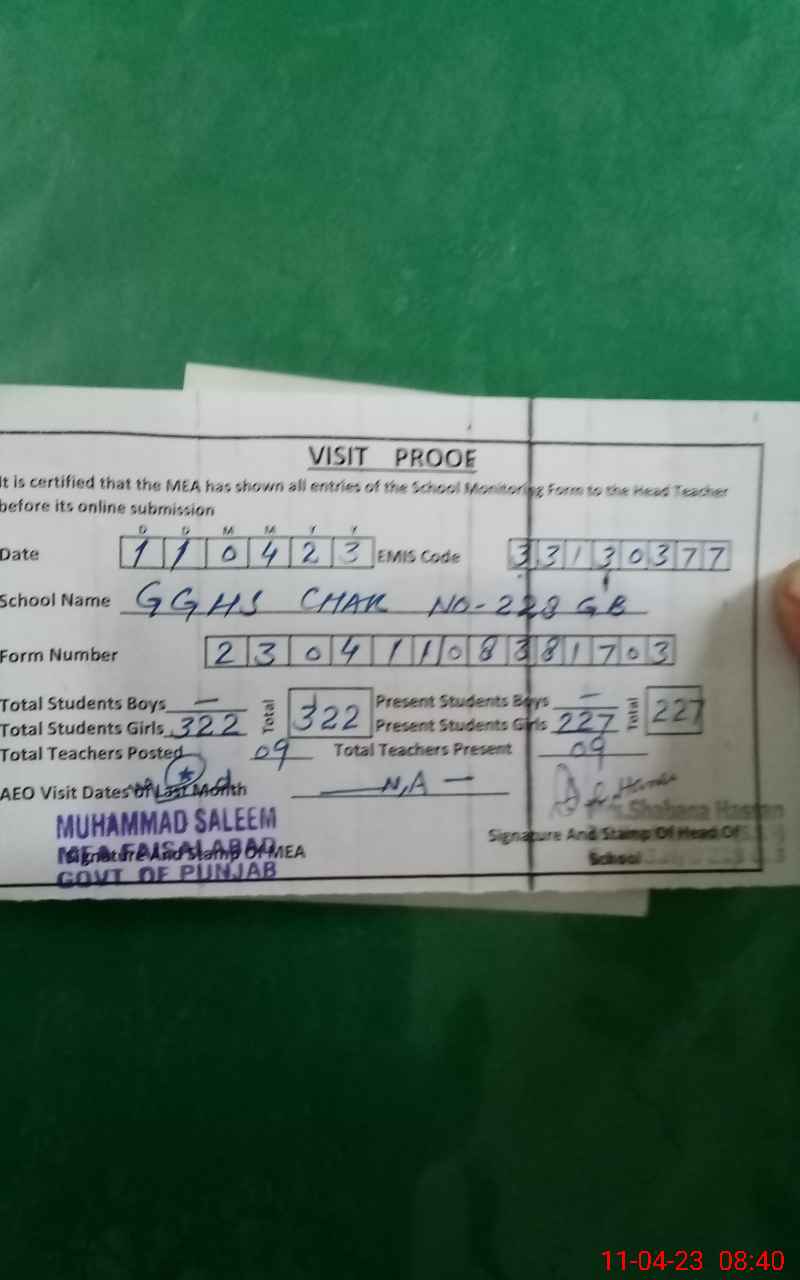 VISIT PROOF
It is certified that the MEA has shown all entries of the School Monitoring Form to the Head Teacher
before its online submission
D D M M Y Y
Date 1 1 0 4 2 3 EMIS Code 3 3 1 3 0 3 7 7
School Name GGHS CHAK NO-228 GB
Form Number 2 3 0 4 1 1 0 8 3 8 1 7 0 3
Total Students Boys — Total 322 Present Students Boys — Total 227
Total Students Girls 322 Present Students Girls 227
Total Teachers Posted 09 Total Teachers Present 09
AEO Visit Dates of Last Month N,A —
MUHAMMAD SALEEM
MEA FAISALABAD
GOVT OF PUNJAB
Signature And Stamp Of MEA
Shabana Hassan
Signature And Stamp Of Head Of
School
11-04-23 08:40